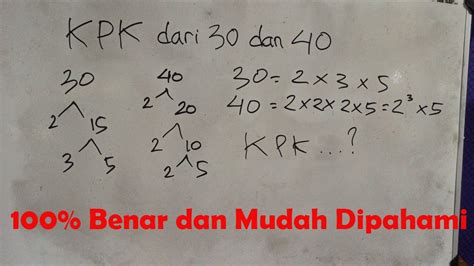 KPK dari 30 dan 40
30
2 15
3 5
40
2 20
2 10
2 5
30 = 2 x 3 x 5
40 = 2x2x2x5=2³x5
KPK ...?
100% Benar dan Mudah Dipahami